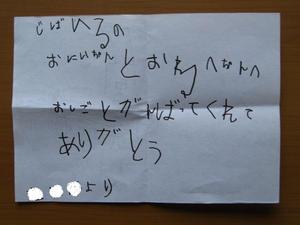 じばいるの
おにいちゃんとおねえちゃんへ
おしごとがんばってくれて
ありがとう
より